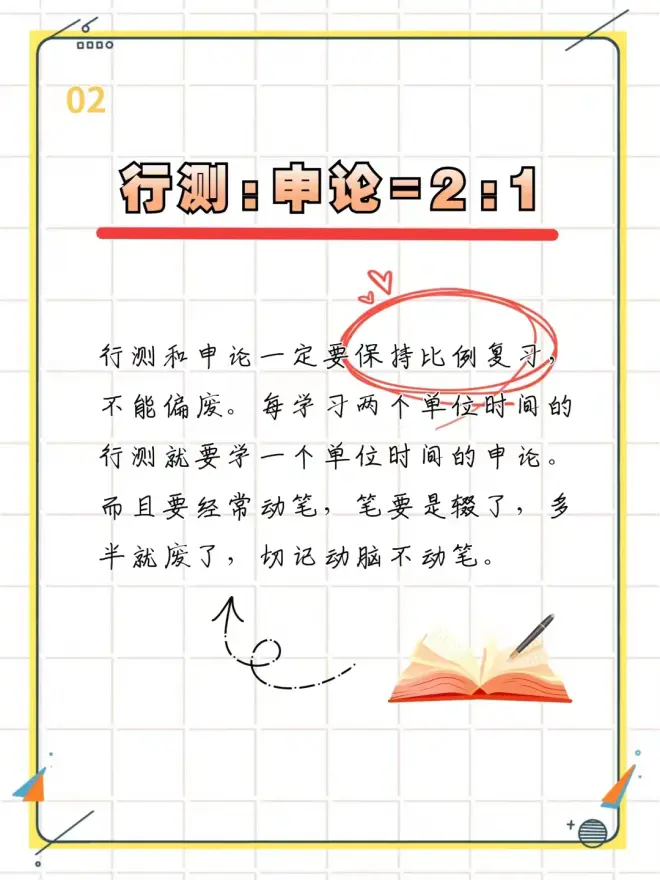 02
行测:申论=2:1
行测和申论一定要保持比例复习，
不能偏废。每学习两个单位时间的
行测就要学一个单位时间的申论。
而且要经常动笔，笔要是辍了，多
半就废了，切记动脑不动笔。